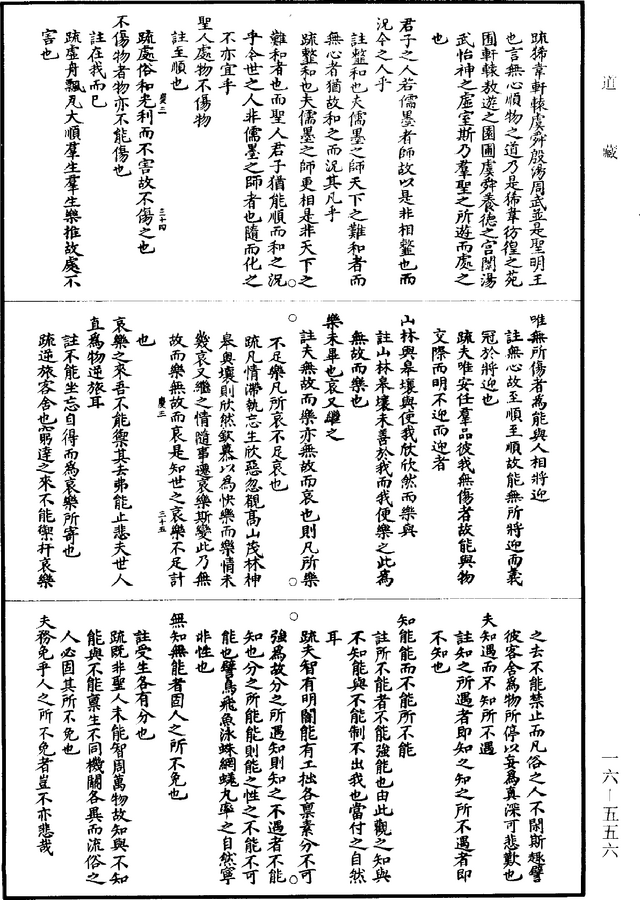 道藏
疏狶韋軒轅虞舜殷湯周武並是聖明王
也言無心順物之道乃是狶韋彷徨之苑
囿軒轅敖遊之園圃虞舜養德之宮闕湯
武怡神之虛室斯乃羣聖之所遊而處之
也
君子之人若儒墨者師故以是非相𩐎也而
況今之人乎
註𩐎和也夫儒墨之師天下之難和者而
無心者猶故和之而況其凡乎
疏𩐎和也夫儒墨之師更相是非天下之
難和者也而聖人君子猶能順而和之況
乎今世之人非儒墨之師者也隨而化之
不亦宜乎
聖人處物不傷物
註至順也
疏處俗和光利而不害故不傷之也
慶三
三十四
不傷物者物亦不能傷也
註在我而已
疏虛舟飄瓦大順羣生羣生樂推故處不
害也
唯無所傷者為能與人相將迎
註無心故至順至順故能無所將迎而義
冠於將迎也
疏夫唯安任羣品彼我無傷者故能與物
交際而明不迎而迎者
山林與皋壤與使我欣欣然而樂與
註山林皋壤未善於我而我便樂之此為
無故而樂也
樂未畢也哀又繼之
註夫無故而樂亦無故而哀也則凡所樂
不足樂凡所哀不足哀也
疏凡情滯執忘生欣惡忽觀高山茂林神
皋奧壤則欣然欽慕以為快樂而樂情未
幾哀又繼之情隨事遷哀樂斯變此乃無
故而樂無故而哀是知世之哀樂不足計
也
慶三
三十五
哀樂之來吾不能禦其去弗能止悲夫世人
直為物逆旅耳
註不能坐忘自得而為哀樂所寄也
疏逆旅客舍也窮達之來不能禦扞哀樂
之去不能禁止而凡俗之人不閑斯趣譬
彼客舍為物所停以妄為真深可悲歎也
夫知遇而不知所不遇
註知之所遇者即知之知之所不遇者即
不知也
知能能而不能所不能
註所不能者不能強能也由此觀之知與
不知能與不能制不出我也當付之自然
耳
疏夫智有明闇能有工拙各稟素分不可
強為故分之所遇知則知之不遇者不能
知也分之所能能則能之性之不能不可
能也譬鳥飛魚泳蛛網蜣丸率之自然寧
非性也
無知無能者固人之所不免也
註受生各有分也
疏既非聖人未能智周萬物故知與不知
能與不能稟生不同機關各異而流俗之
人必固其所不免也
夫務免乎人之所不免者豈不亦悲哉
一六—五五六